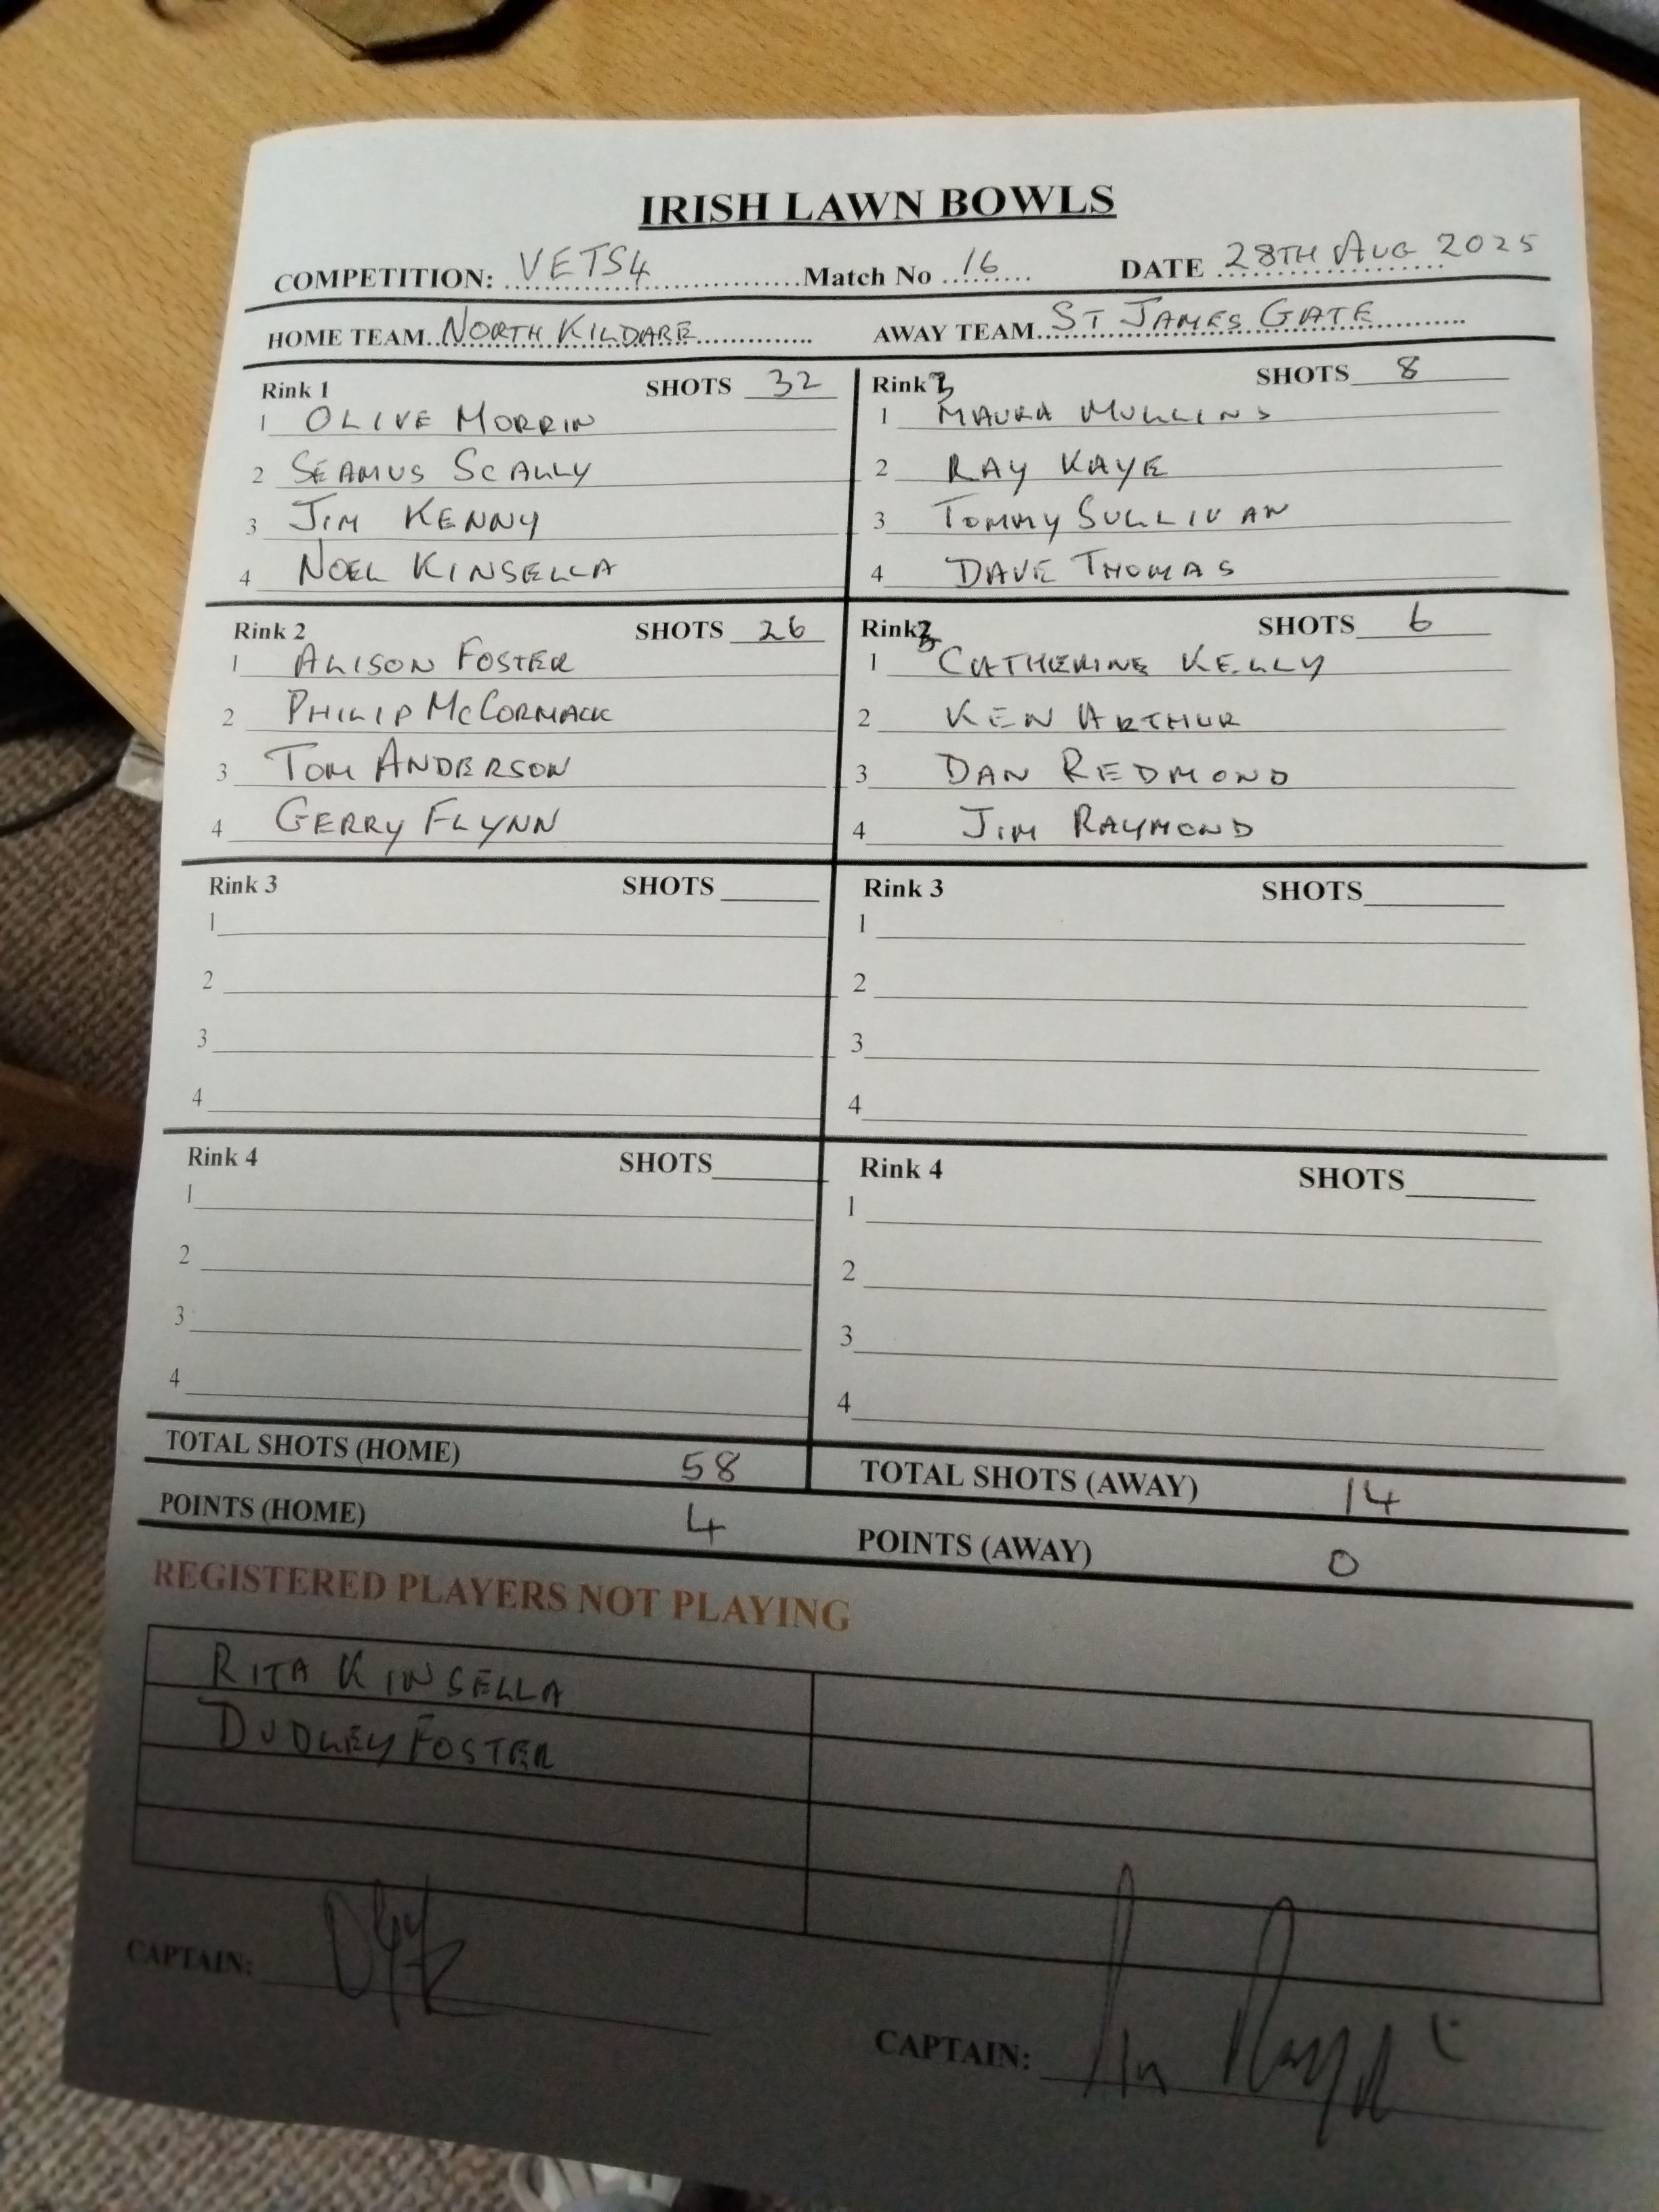 IRISH LAWN BOWLS
COMPETITION: VETS4 Match No 16 DATE 28TH AUG 2025
HOME TEAM NORTH KILDARE AWAY TEAM ST JAMES GATE
Rink 1 SHOTS 32
1 OLIVE MORRIN
2 SEAMUS SCALLY
3 JIM KENNY
4 NOEL KINSELLA
Rink SHOTS 8
1 MAURA MULLINS
2 RAY KAYE
3 TOMMY SULLIVAN
4 DAVE THOMAS
Rink 2 SHOTS 26
1 ALISON FOSTER
2 PHILIP MCCORMACK
3 TOM ANDERSON
4 GERRY FLYNN
Rink SHOTS 6
1 CATHERINE KELLY
2 KEN ARTHUR
3 DAN REDMOND
4 JIM RAYMOND
Rink 3 SHOTS
1
2
3
4
Rink 3 SHOTS
1
2
3
4
Rink 4 SHOTS
1
2
3
4
Rink 4 SHOTS
1
2
3
4
TOTAL SHOTS (HOME) 58 TOTAL SHOTS (AWAY) 14
POINTS (HOME) 4 POINTS (AWAY) 0
REGISTERED PLAYERS NOT PLAYING
RITA KINSELLA
DUDLEY FOSTER
CAPTAIN:
CAPTAIN: